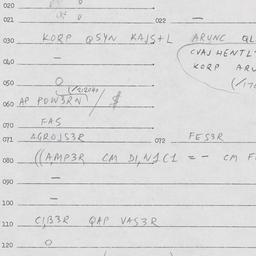 020
021 022 —
030 KORP QSYN KAJS+L ARUNC QL
CVAJ HENTL
040 —
KORP ARU
050 O
060 AP POW3RN / $
070 FAS
071 AGROJS3R 072 FES3R
080 ((AMP3R CM DI,N1C1 = - CM F
090 —
100 —
110 CJB3R QAP VAS3R
120 O